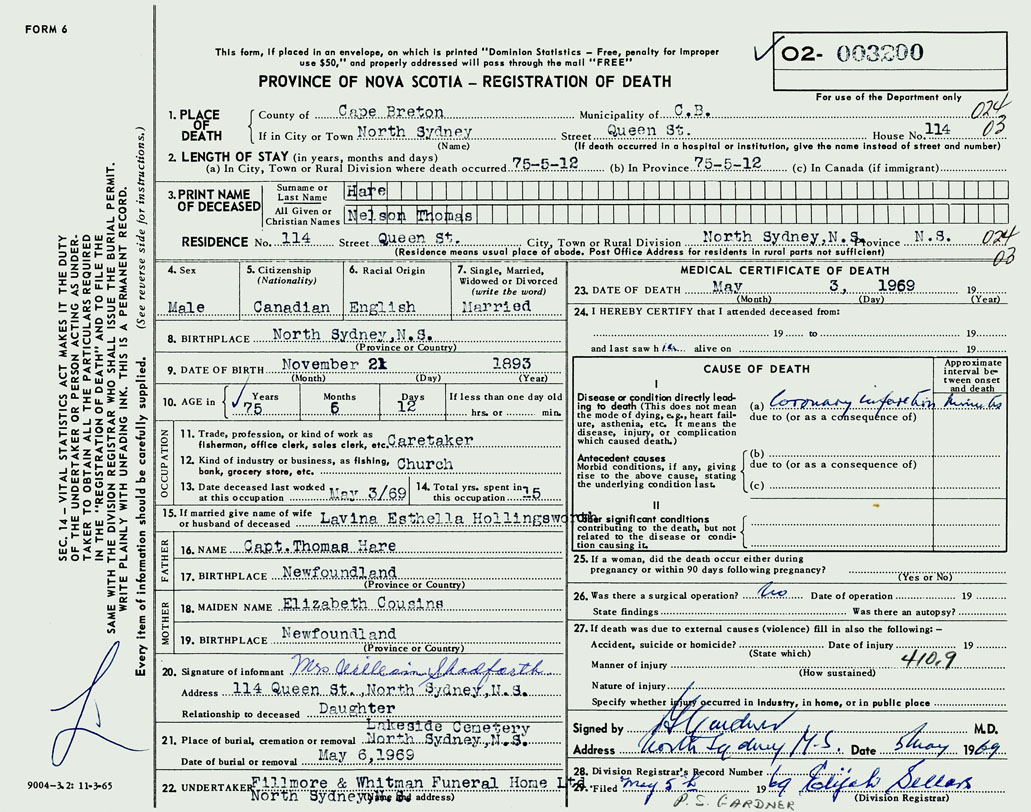 FORM 6
This form, if placed in an envelope, on which is printed "Dominion Statistics – Free, penalty for improper
use $50," and properly addressed will pass through the mail "FREE"
PROVINCE OF NOVA SCOTIA – REGISTRATION OF DEATH
02- 003200
For use of the Department only
024
03
1. PLACE OF DEATH
County of Cape Breton Municipality of C.B.
If in City or Town North Sydney Street Queen St. House No. 114
(Name) (If death occurred in a hospital or institution, give the name instead of street and number)
2. LENGTH OF STAY (in years, months and days)
(a) In City, Town or Rural Division where death occurred 75-5-12 (b) In Province 75-5-12 (c) In Canada (if immigrant)
3. PRINT NAME OF DECEASED
Surname or Last Name Hare
All Given or Christian Names Nelson Thomas
RESIDENCE No. 114 Street Queen St. City, Town or Rural Division North Sydney, N.S. Province N.S.
(Residence means usual place of abode. Post Office Address for residents in rural parts not sufficient)
024
03
4. Sex
Male
5. Citizenship (Nationality)
Canadian
6. Racial Origin
English
7. Single, Married, Widowed or Divorced (write the word)
Married
8. BIRTHPLACE North Sydney, N.S.
(Province or Country)
9. DATE OF BIRTH November 21 1893
(Month) (Day) (Year)
10. AGE in Years 75 Months 5 Days 12 If less than one day old hrs. or min.
OCCUPATION
11. Trade, profession, or kind of work as
fisherman, office clerk, sales clerk, etc. Caretaker
12. Kind of industry or business, as fishing,
bank, grocery store, etc. Church
13. Date deceased last worked
at this occupation May 3/69
14. Total yrs. spent in
this occupation 15
15. If married give name of wife
or husband of deceased Lavina Esthella Hollingsworth
FATHER
16. NAME Capt. Thomas Hare
17. BIRTHPLACE Newfoundland
(Province or Country)
MOTHER
18. MAIDEN NAME Elizabeth Cousins
19. BIRTHPLACE Newfoundland
(Province or Country)
20. Signature of informant Mrs William Shadforth
Address 114 Queen St., North Sydney, N.S.
Relationship to deceased Daughter
Lakeside Cemetery
21. Place of burial, cremation or removal North Sydney, N.S.
Date of burial or removal May 6, 1969
22. UNDERTAKER Fillmore & Whitman Funeral Home Ltd
North Sydney, N.S.
(Name and address)
MEDICAL CERTIFICATE OF DEATH
23. DATE OF DEATH May 3, 1969 19
(Month) (Day) (Year)
24. I HEREBY CERTIFY that I attended deceased from:
19 to 19
and last saw him alive on 19
CAUSE OF DEATH
Approximate interval between onset and death
I
Disease or condition directly leading to death (This does not mean the mode of dying, e.g., heart failure, asthenia, etc. It means the disease, injury, or complication which caused death.)
(a) Coronary infarction Minutes
due to (or as a consequence of)
Antecedent causes
Morbid conditions, if any, giving rise to the above cause, stating the underlying condition last.
(b)
due to (or as a consequence of)
(c)
II
Other significant conditions
contributing to the death, but not related to the disease or condition causing it.
25. If a woman, did the death occur either during
pregnancy or within 90 days following pregnancy?
(Yes or No)
26. Was there a surgical operation? No Date of operation 19
State findings Was there an autopsy?
27. If death was due to external causes (violence) fill in also the following: –
Accident, suicide or homicide? Date of injury 19
(State which)
Manner of injury 410.9
(How sustained)
Nature of injury
Specify whether injury occurred in Industry, in home, or in public place
Signed by Gardner M.D.
Address North Sydney N.S. Date 5 May 1969
28. Division Registrar's Record Number
29. Filed May 5th 1969 Elijah Sellars
(Division Registrar)
P.S. GARDNER
SEC. 14 – VITAL STATISTICS ACT MAKES IT THE DUTY
OF THE UNDERTAKER OR PERSON ACTING AS UNDER-
TAKER TO OBTAIN ALL THE PARTICULARS REQUIRED
IN THE "REGISTRATION OF DEATH" AND TO FILE THE
SAME WITH THE DIVISION REGISTRAR WHO SHALL ISSUE THE BURIAL PERMIT.
WRITE PLAINLY WITH UNFADING INK. THIS IS A PERMANENT RECORD.
Every item of information should be carefully supplied. (See reverse side for instructions.)
9004–3.2: 11-3-65